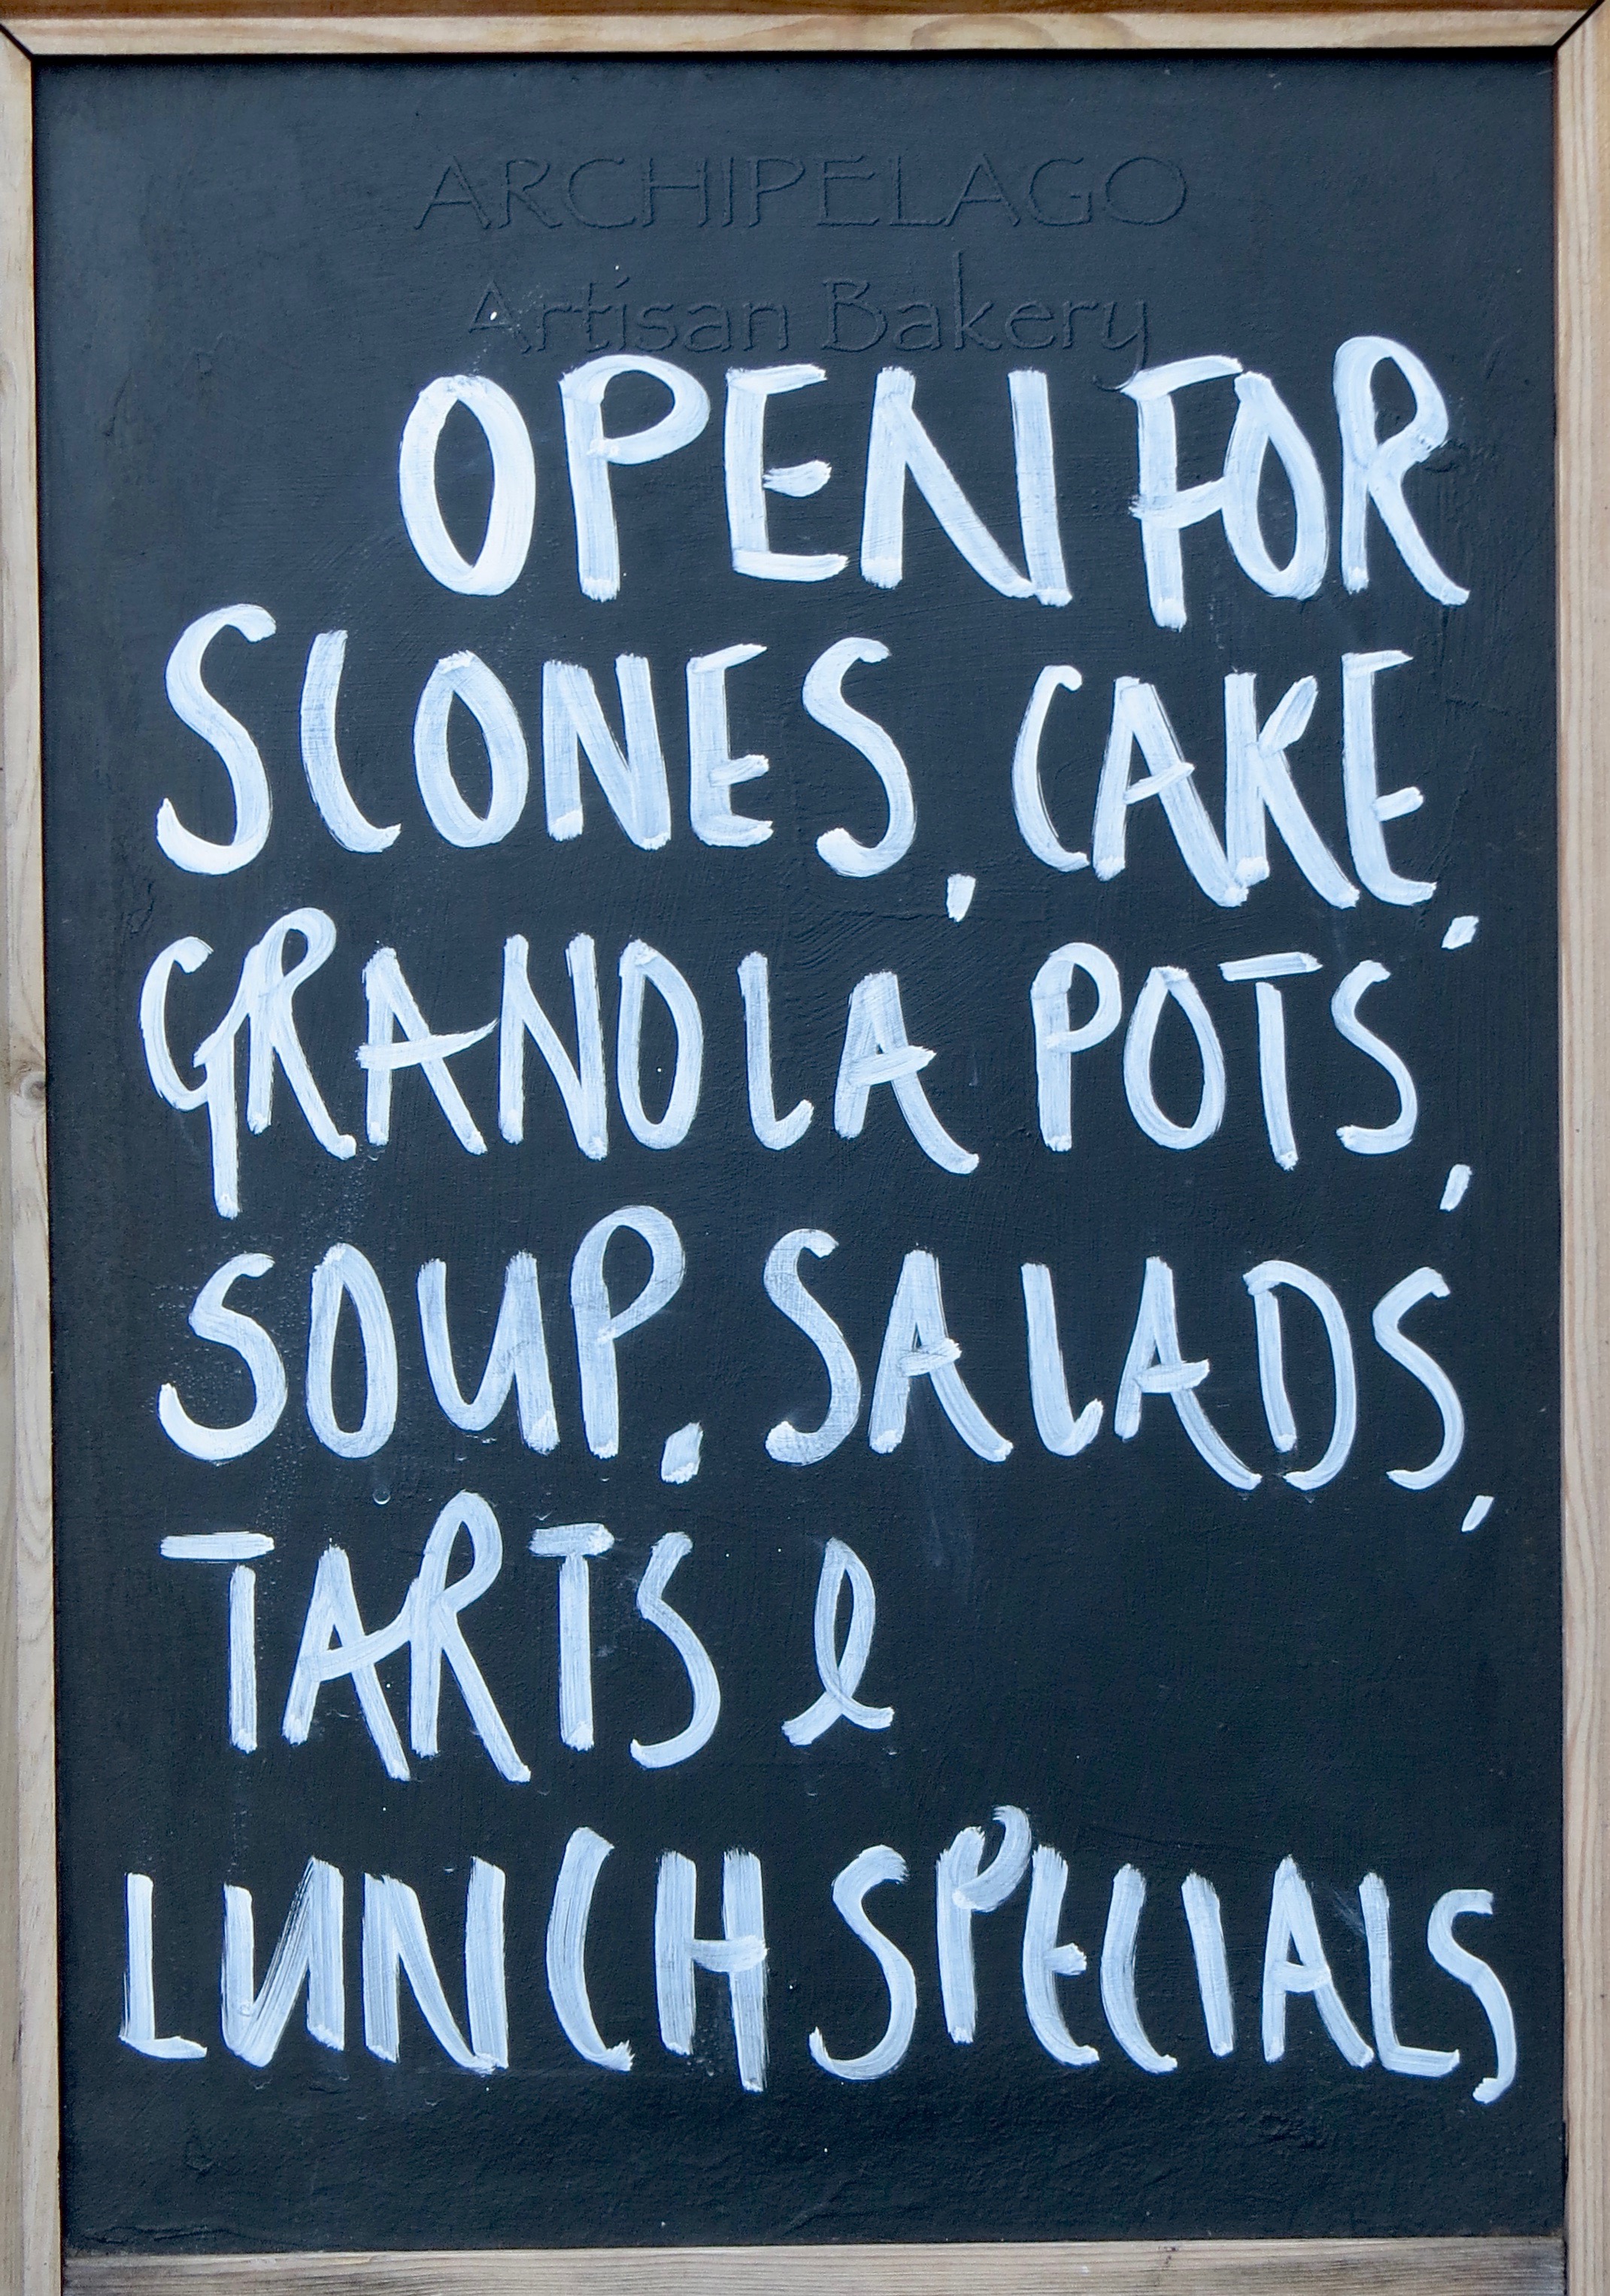 ARCHIPELAGO
Artisan Bakery
OPEN FOR
SCONES, CAKE,
GRANOLA POTS,
SOUP, SALADS,
TARTS &
LUNCH SPECIALS